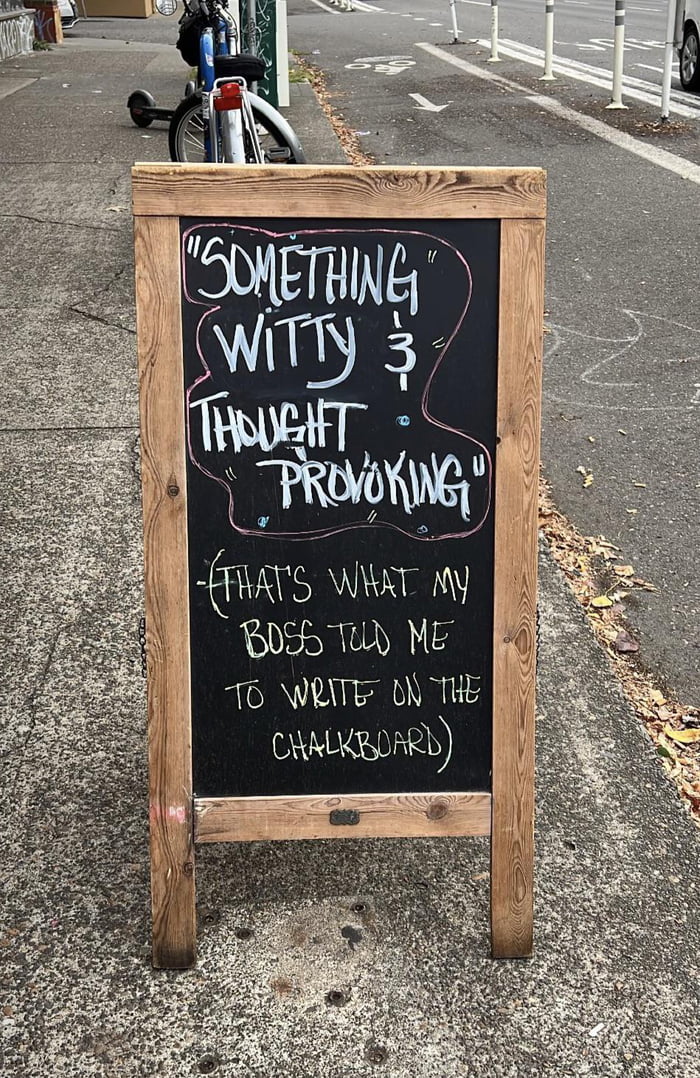 "SOMETHING"
WITTY &
THOUGHT
PROVOKING"
(THAT'S WHAT MY
BOSS TOLD ME
TO WRITE ON THE
CHALKBOARD)